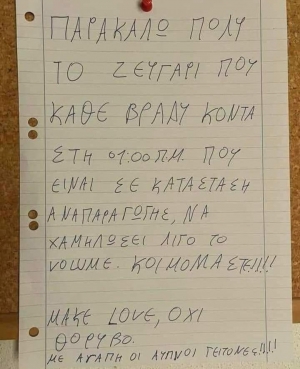 ΠΑΡΑΚΑΛΩ ΠΟΛΥ
ΤΟ ΖΕΥΓΑΡΙ ΠΟΥ
ΚΑΘΕ ΒΡΑΔΥ ΚΟΝΤΑ
ΣΤΗ 01:00 Π.Μ. ΠΟΥ
ΕΙΝΑΙ ΣΕ ΚΑΤΑΣΤΑΣΗ
ΑΝΑΠΑΡΑΓΩΓΗΣ, ΝΑ
ΧΑΜΗΛΩΣΕΙ ΛΙΓΟ ΤΟ
VOLUME. ΚΟΙΜΟΜΑΣΤΕ!!!!
MAKE LOVE, ΟΧΙ
ΘΟΡΥΒΟ.
ΜΕ ΑΓΑΠΗ ΟΙ ΑΥΠΝΟΙ ΓΕΙΤΟΝΕΣ!!!!